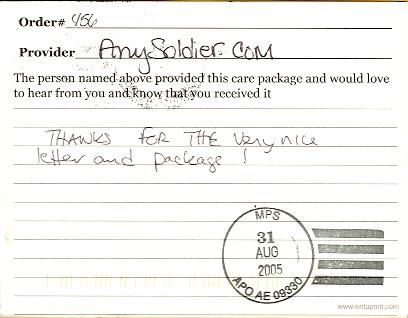 Order# 456
Provider AnySoldier.COM
The person named above provided this care package and would love
to hear from you and know that you received it
THANKS FOR THE very nice
letter and package !
MPS
31
AUG
2005
APO AE 09330
www.veitaprint.com